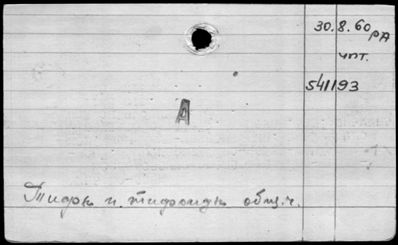 30.8.60 рА
чпт.
541193
А
Тифы и тифоиды общ.ч.